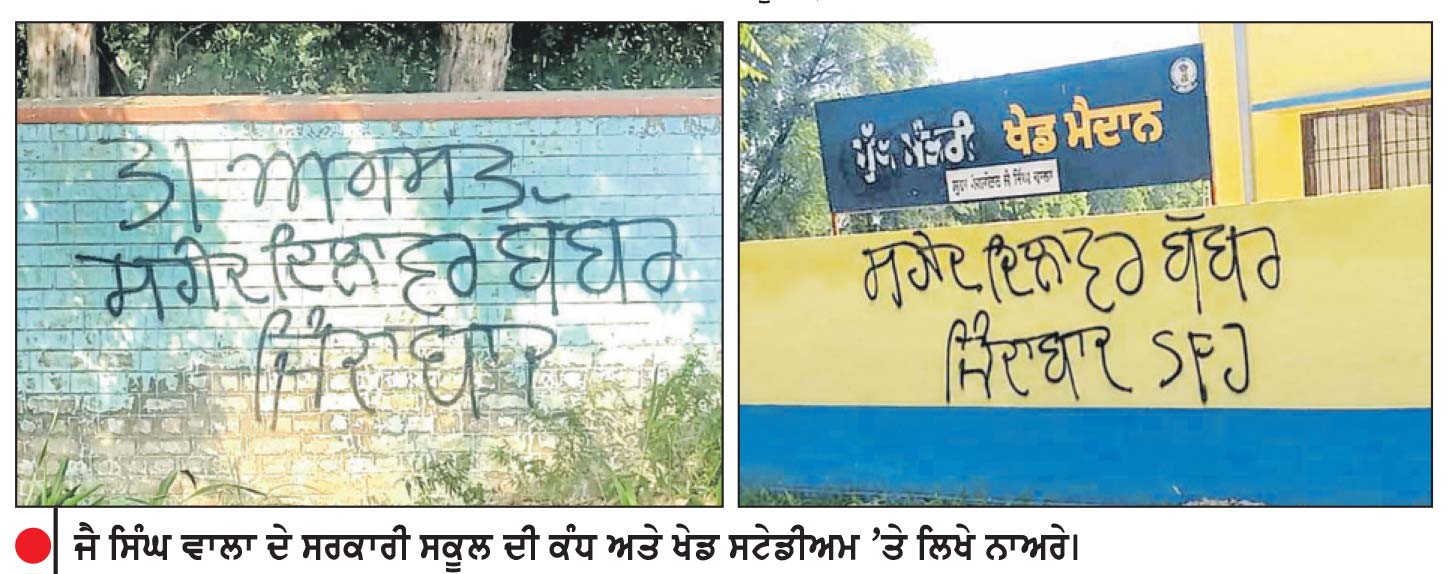 31 ਅਗਸਤ
ਸਹੀਦ ਦਿਲਾਵਰ ਬੱਬਰ
ਜਿੰਦਾਬਾਦ
ਮੁੱਖ ਮੰਤਰੀ ਖੇਡ ਮੈਦਾਨ
ਜੈ ਸਿੰਘ ਵਾਲਾ
ਸਹੀਦ ਦਿਲਾਵਰ ਬੱਬਰ
ਜਿੰਦਾਬਾਦ SFJ
ਜੈ ਸਿੰਘ ਵਾਲਾ ਦੇ ਸਰਕਾਰੀ ਸਕੂਲ ਦੀ ਕੰਧ ਅਤੇ ਖੇਡ ਸਟੇਡੀਅਮ ’ਤੇ ਲਿਖੇ ਨਾਅਰੇ।